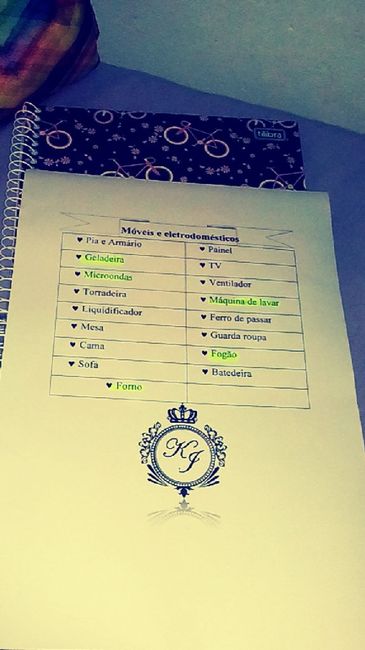 tilibra
Móveis e eletrodomésticos
♥ Pia e Armário
♥ Painel
♥ Geladeira
♥ TV
♥ Microondas
♥ Ventilador
♥ Torradeira
♥ Máquina de lavar
♥ Liquidificador
♥ Ferro de passar
♥ Mesa
♥ Guarda roupa
♥ Cama
♥ Fogão
♥ Sofa
♥ Batedeira
♥ Forno
KJ